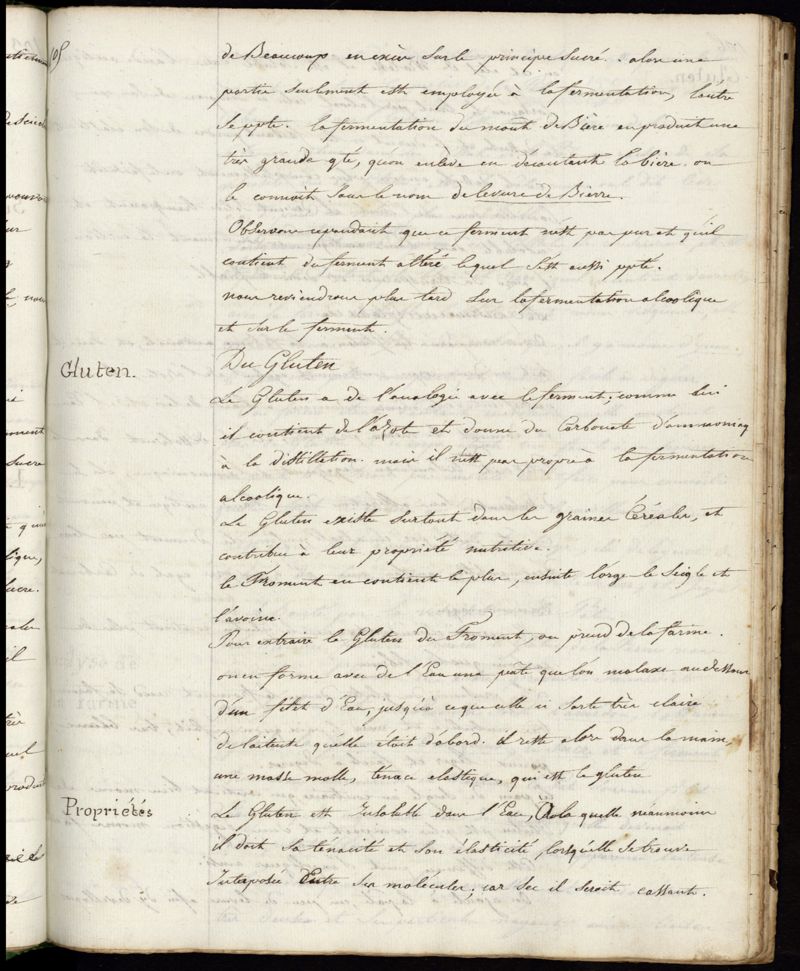 105
de Beaucoup en excès sur le principe sucré. alors une
partie seulement est employée à la fermentation, l'autre
se ppte. la fermentation du moût de Bière en produit une
très grande qté, qu'on enlève en décantant la bière. on
le connoit sous le nom de levure de Bierre.
Observons cependant que ce ferment n'est pas pur et qu'il
contient du ferment altéré lequel s'est aussi ppté.
nous reviendrons plus tard sur la fermentation alcoolique
et sur le ferment.
Gluten.
Du Gluten
Le Gluten a de l'analogie avec le ferment; comme lui
il contient de l'azote et donne du Carbonate d'ammoniaq
à la distillation. mais il n'est pas propre à la fermentation
alcoolique.
Le Gluten existe surtout dans les graines Céréales, et
contribue à leur propriété nutritive.
le Froment en contient le plus, ensuite l'orge le Seigle et
l'avoine.
Pour extraire le Gluten du Froment, on prend de la farine.
on en forme avec de l'Eau une pâte que l'on malaxe au dessous
d'un filet d'Eau, jusqu'à ce que celle ci sorte très claire
de laiteuse qu'elle étoit d'abord. il reste alors dans la main,
une masse molle, tenace elastique, qui est le gluten
Propriétés
Le Gluten est Insoluble dans l'Eau, à la quelle néanmoins
il doit sa ténacité et son élasticité, lorsqu'elle se trouve
Interposée Entre ses molécules; car sec il seroit cassant.